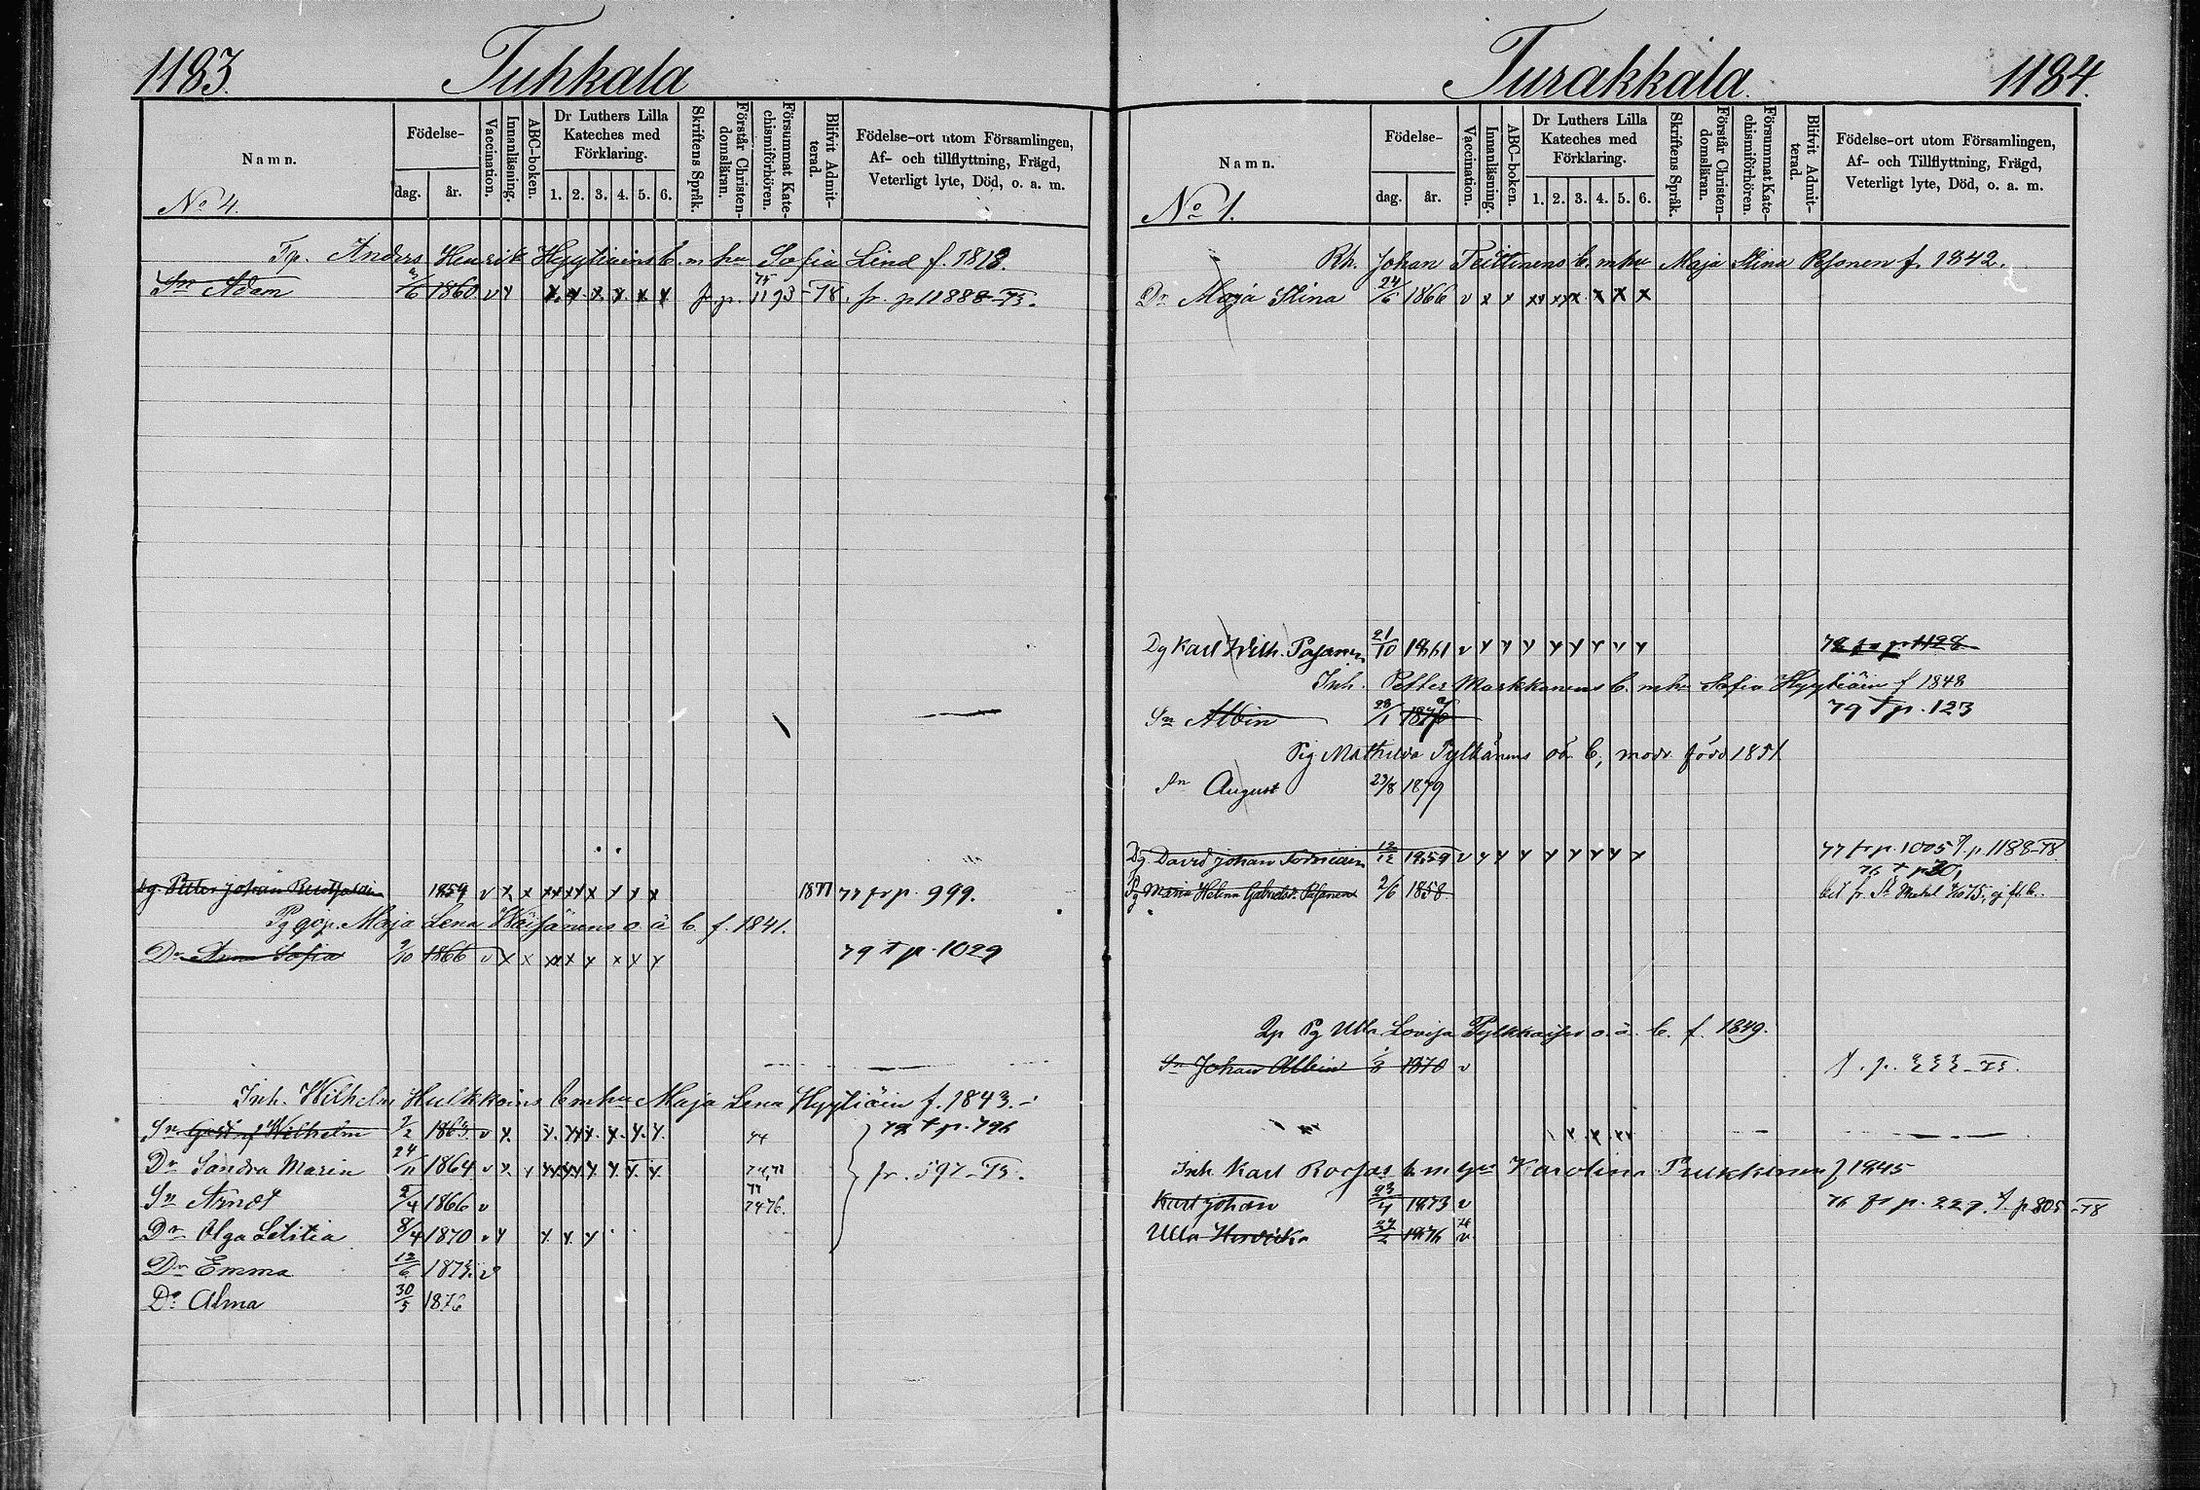 1183.
Tuhkala
Namn.
Födelse-
dag.
år.
Vaccination.
Innanläsning.
ABC-boken.
Dr Luthers Lilla Kateches med Förklaring.
1. 2. 3. 4. 5. 6.
Skriftens Språk.
Förstår Christen-domsläran.
Försummat Kate-chismiförhören.
Blifvit Admit-terad.
Födelse-ort utom Församlingen,
Af- och tillflyttning, Frägd,
Veterligt lyte, Död, o. a. m.
No 4.
Anders Henrik Hyytiäins b. m hu Sofia Lind f. 1813.
Sn Adam 1860 v y x. y. x. y. x y 1193 -78. fr. p 1188
Petter Johan 1859 v x x xx xx x y y x 1877 77 fr p. 999.
Maja Lena o. ä b. f. 1841.
Dr Anna Sofia 9/10 1866 v x x xx x y x y y 79 p. 1029
Inh. Wilhelm Hulkkoins b m hu Maja Lena Hyytiäin f. 1843.
Sn Wilhelm 1863 v y. y. yy y. y. y. y. p. 796
Dr Sandra Maria 24/11 1864 v y. y y. y. y. y.
fr. 597
Sn Arndt 2/4 1866 v 74 76.
Dr Olga Letitia 8/4 1870 v y y. y. y
Dr Emma 12/6 1873. v
Dr Alma 30/5 1876
Turakkala.
1184.
Namn.
Födelse-
dag.
år.
Vaccination.
Innanläsning.
ABC-boken.
Dr Luthers Lilla Kateches med Förklaring.
1. 2. 3. 4. 5. 6.
Skriftens Språk.
Förstår Christen-domsläran.
Försummat Kate-chismiförhören.
Blifvit Admit-terad.
Födelse-ort utom Församlingen,
Af- och Tillflyttning, Frägd,
Veterligt lyte, Död, o. a. m.
No 1.
Rh. Johan Teittinens b. m hu Maja Stina f. 1842.
Dr Maja Stina 24/6 1866 v x x xx xxx x x x
Dg Karl Wilh. Pasanen 21/10 1861 v y y y y y y y y fr p. 1128
Inh. Petter Markkanens b. m hu Sofia Hyytiäin f 1848
Sn Albin 28/1 79 p. 123
Pig Mathilda oä b, modr född 1851
Sn August 23/8 1879
Dg David Johan 12/12 1859 v y y y y y y y y 77 fr p. 1005 p. 1188-78
Pg Maria Helena Pasanen 2/6 1858
Pg Ulla Lovisa o. ä. b. f. 1849.
Sn Johan Albin 1870 v
Inh Karl b. m hu Karolina f 1845
Karl Johan 1873 v 76 fr p. 229. p 805 -78
Ulla 27/2 1876 v